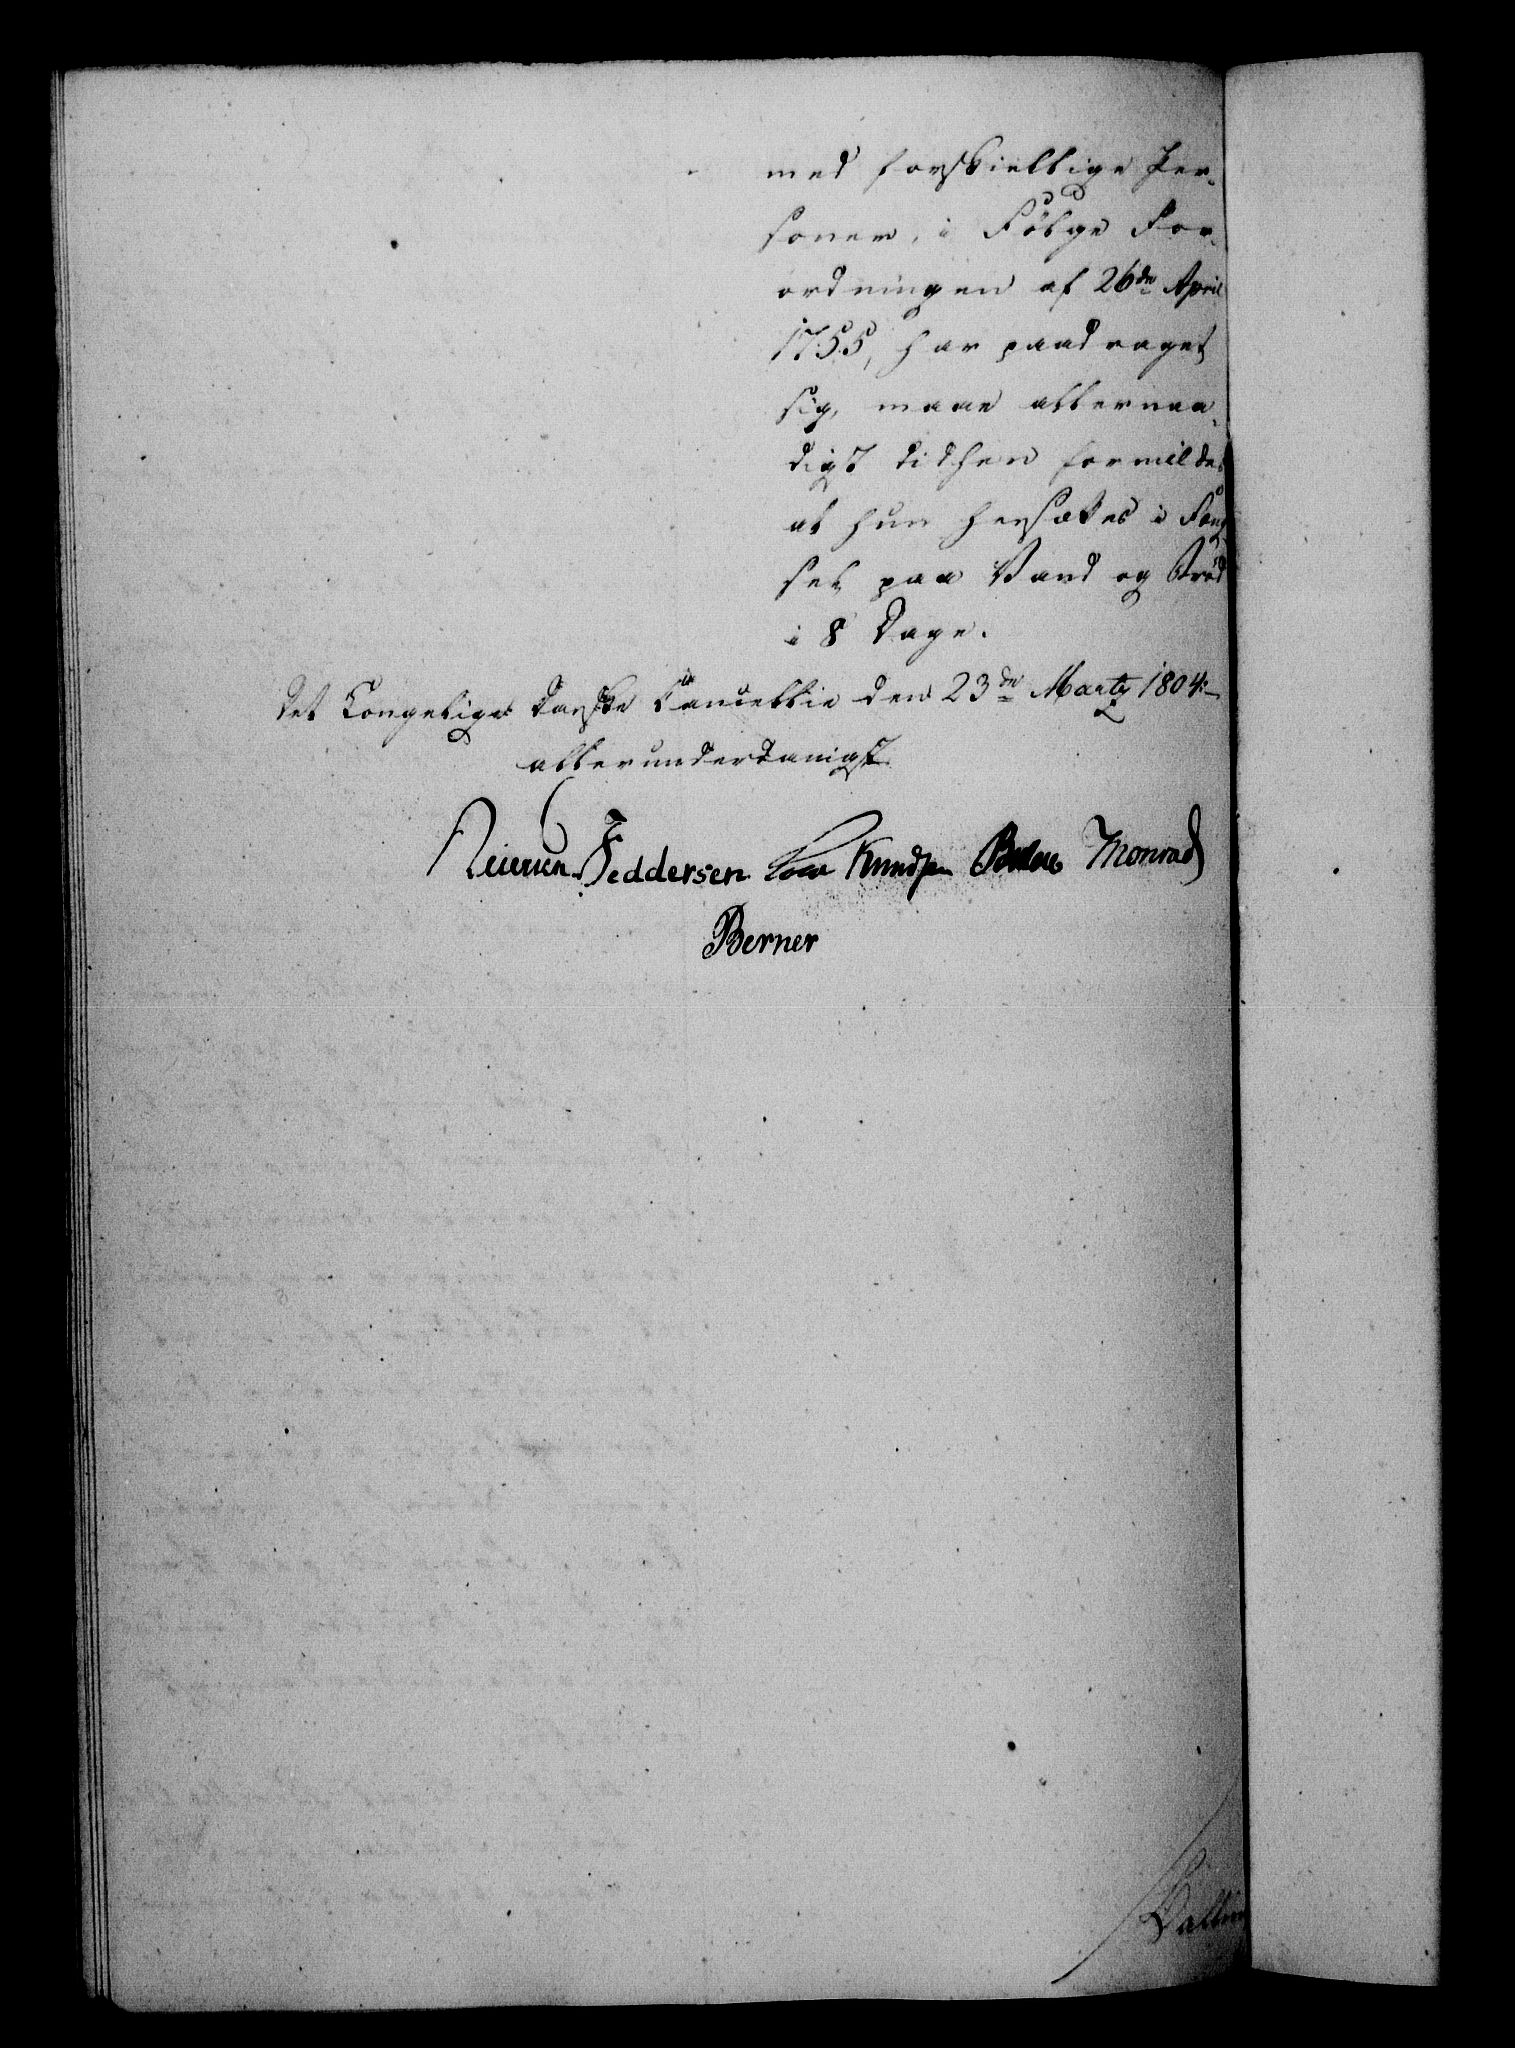 med forskiellige Per-
soner, i Følge For-
ordningen af 26de April
1755, har paadraget
sig, maae allernaa-
digst didhen formildes
at hun hensættes i Fæng-
sel paa Vand og Brød
i 8 Dage.
Det Kongelige Danske Cancellie den 23de Martz 1804.
allerunderdanigst
Feddersen Knudsen Monrad
Berner